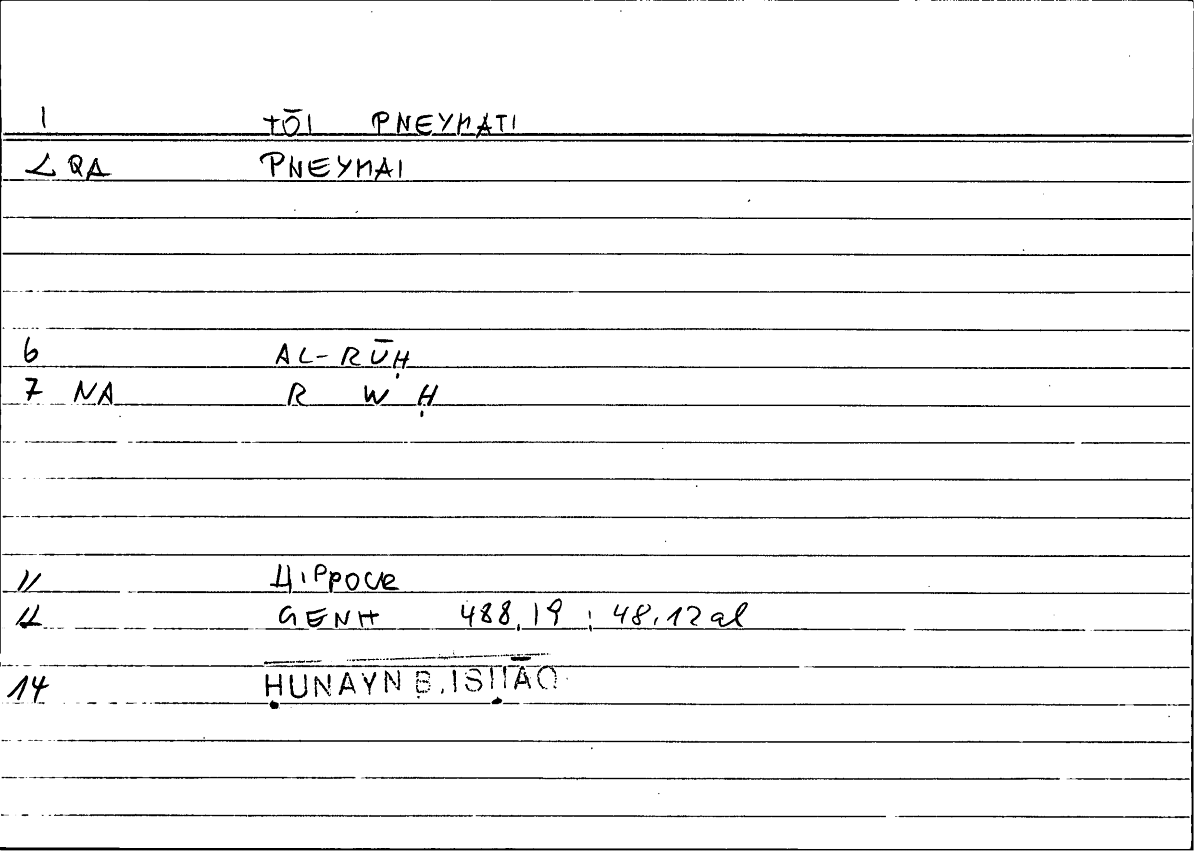 1 TŌI PNEYMATI
2 QA PNEYMAI
6 AL-RŪḤ
7 NA R W Ḥ
11 Hippocr
12 GENH 488,19 ; 48,12 al
14 ḤUNAYN B. ISḤĀQ